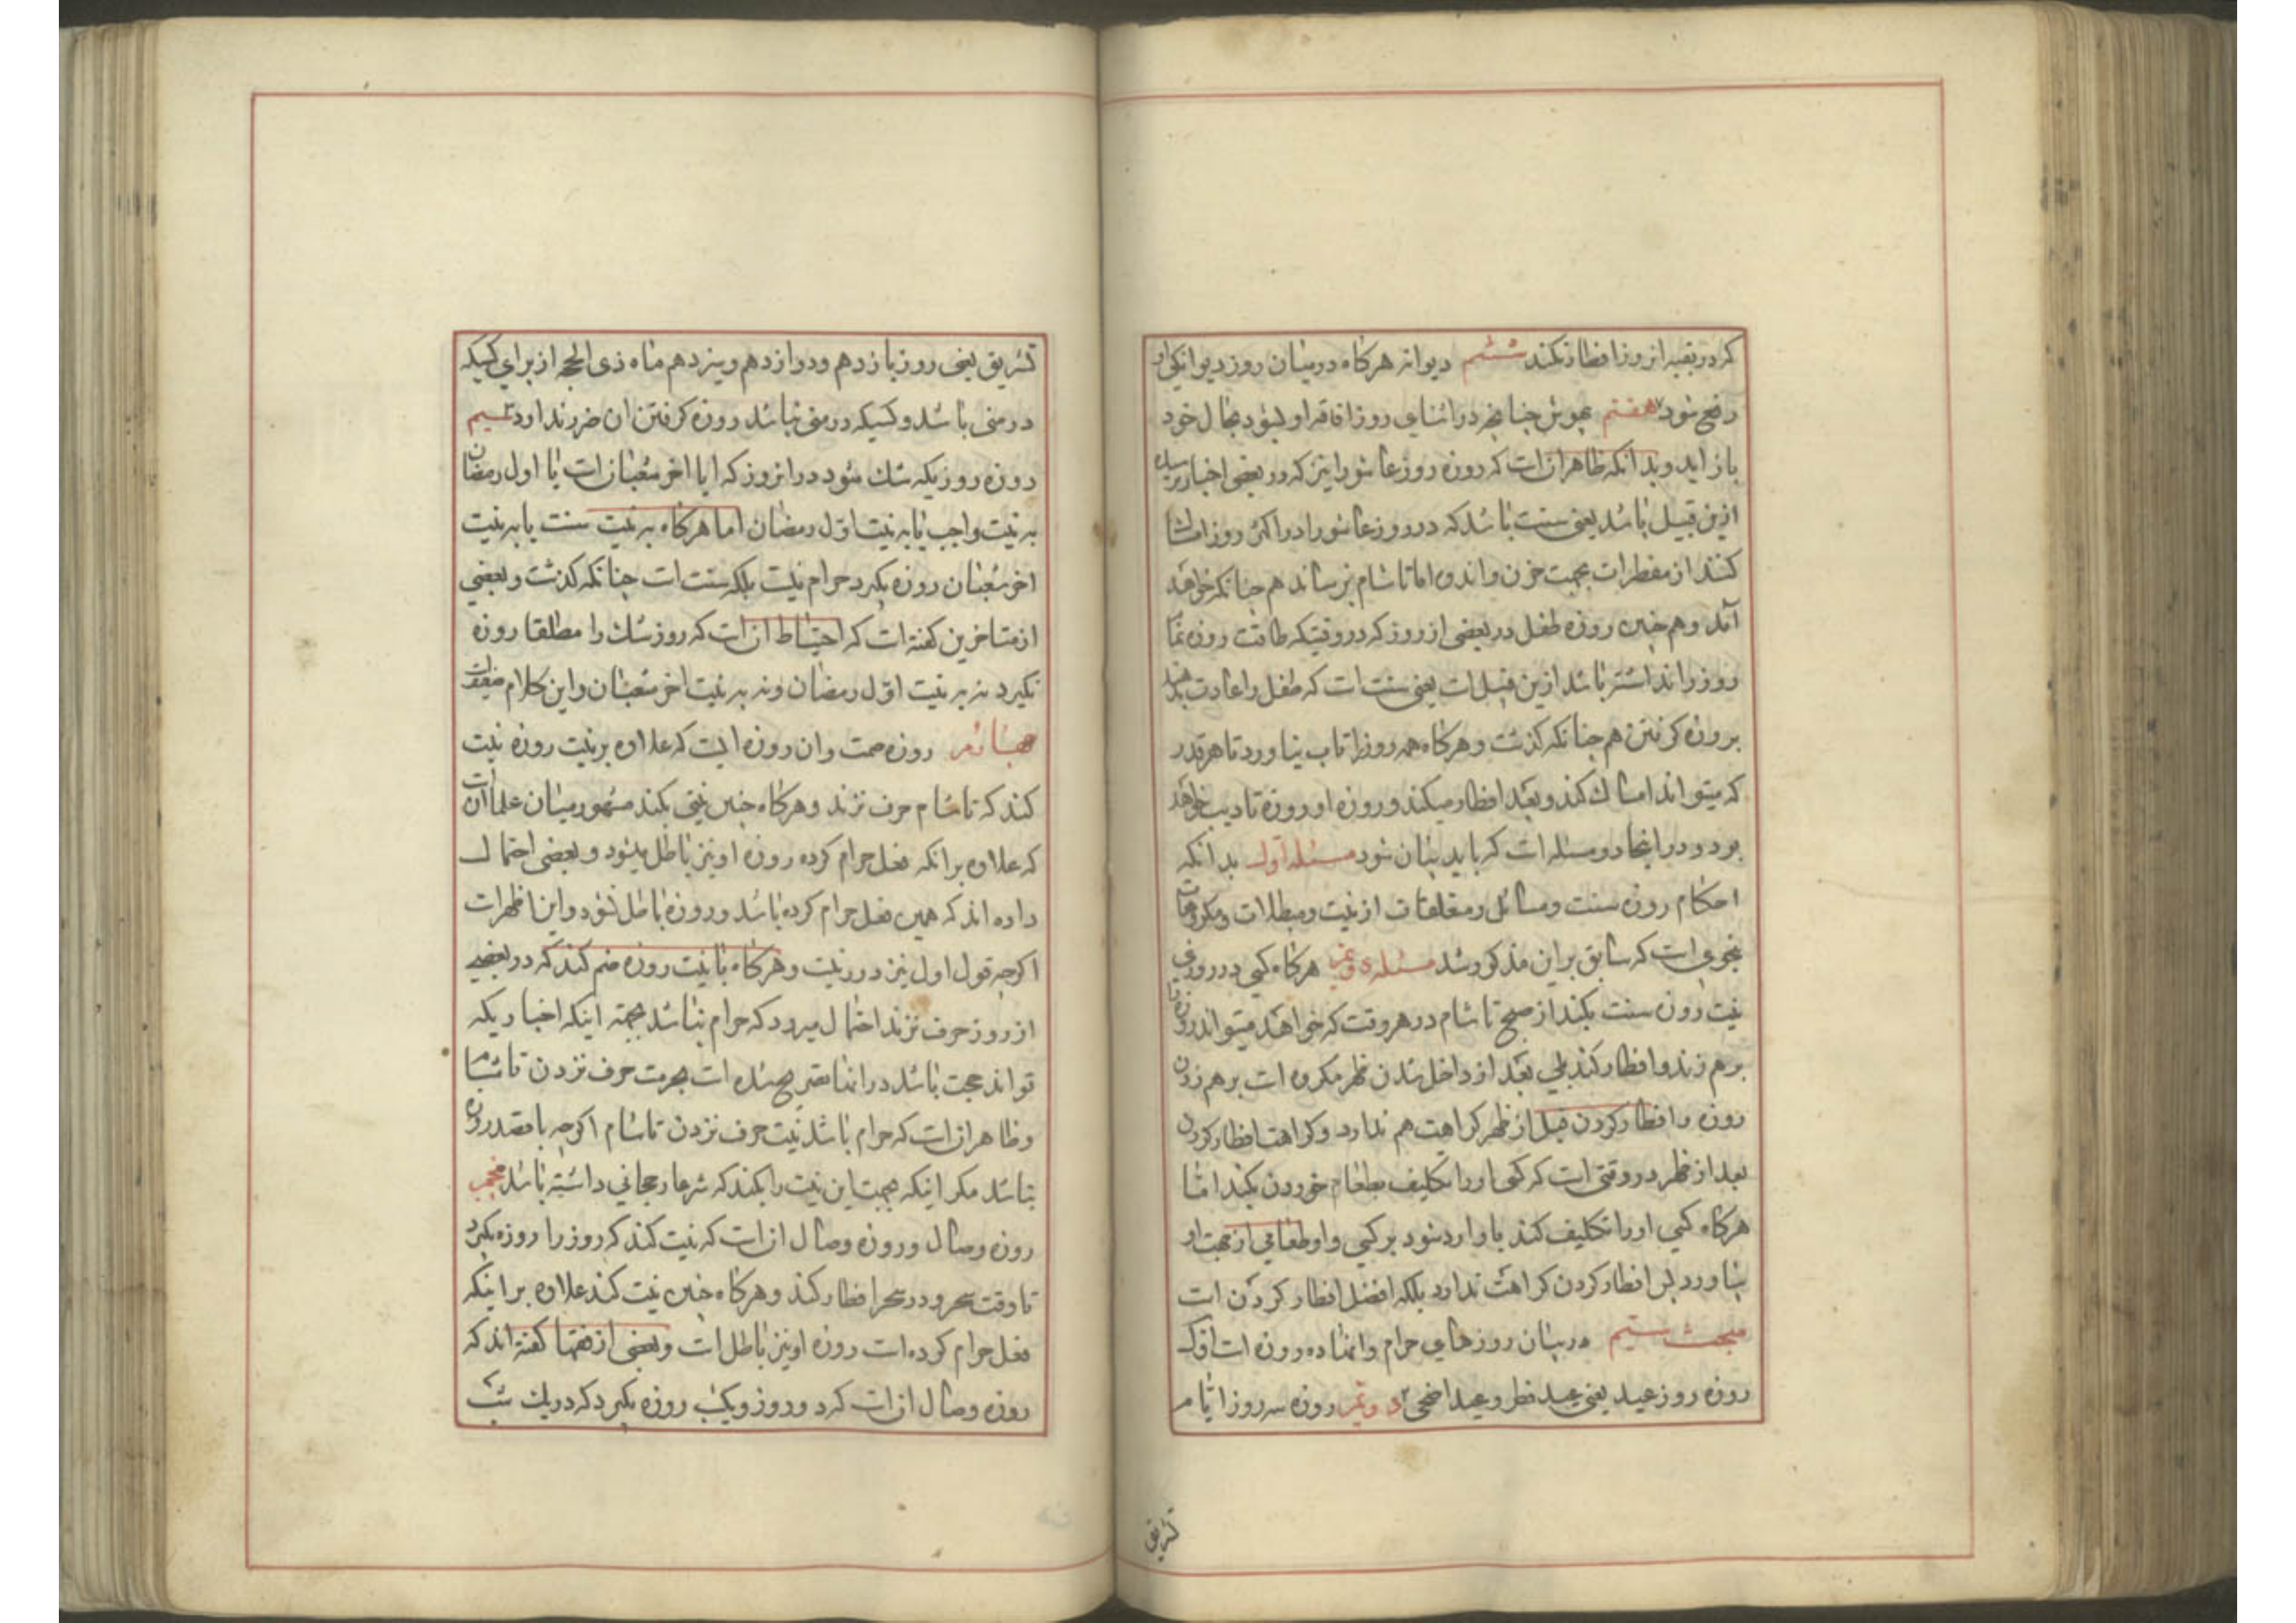 که در بقیه انروز افطار نکند ششم دیوانه هرکاه در میان روز دیوانکی او
رفع شود هفتم بیهوش چنانچه در اثنای روز افاقه او بشود بحال خود
باز اید و بدانکه ظاهر انست که روزه روز عاشورا نیز که در بعضی اخبار رسیده
ازین قبیل باشد یعنی سنت باشد که در روز عاشورا در اکثر روز امساک
کنند از مفطرات بجهت حزن و اندوه اما تا شام نرسانند هم چنانکه خواهد
آمد و هم چنین روزه طفل در بعضی از روز که در وقتیکه طاقت روزه تمام
روز را نداشته باشد ازین قبیل است یعنی سنت است که طفل را عادت بدهند
بروزه کرفتن هم چنانکه کذشت و هرکاه همه روز را تاب نیاورد تا هر قدر
که میتواند امساک کند و بعد افطار میکند و روزه او روزه تادیب خواهد
بود و در اینجا دو مسئله است که باید بیان شود مسئله اول بدانکه
احکام روزه سنت و مسائل و متعلقات از نیت و مبطلات و مکروهات
بنحوی است که سابق بر این مذکور شد مسئله دویم هرکاه کسی در روزی
نیت روزه سنت بکند از صبح تا شام در هر وقت که خواهد میتواند روزه را
برهم زند و افطار کند بلی بعد از داخل شدن ظهر مکروه است برهم زدن
روزه و افطار کردن قبل از ظهر کراهت هم ندارد و کراهت افطار کردن
بعد از ظهر در وقتی است که کسی او را تکلیف بطعام خوردن نکند اما
هرکاه کسی او را تکلیف کند یا وارد شود بر کسی و او طعامی از جهت او
بیاورد پس افطار کردن کراهت ندارد بلکه افضل افطار کردن است
مبحث سیم در بیان روزهای حرام و انها ده روزه است اول
روزه روز عید یعنی عید فطر و عید اضحی دویم روزه سه روز ایام
تشریق
تشریق یعنی روز یازدهم و دوازدهم و سیزدهم ماه ذی الحجه از برای کسیکه
در منی باشد و کسیکه در منی نباشد روزه کرفتن ان ضرر ندارد سیم
روزه روزیکه شک شود در انروز که ایا اخر شعبان است یا اول رمضان
به نیت واجب یا به نیت اول رمضان اما هرکاه به نیت سنت یا به نیت
اخر شعبان روزه بکیرد حرام نیست بلکه سنت است چنانکه کذشت و بعضی
از متاخرین کفته است که احتیاط ان است که روز شک را مطلقا روزه
نکیرد نه به نیت اول رمضان و نه به نیت اخر شعبان و این کلام ضعیف است
چهارم روزه صمت و ان روزه ایست که علاوه بر نیت روزه نیت
کند که تا شام حرف نزند و هرکاه چنین نیتی بکند مشهور میان علما ان است
که علاوه بر انکه فعل حرام کرده روزه او نیز باطل میشود و بعضی احتمال
داده اند که همین فعل حرام کرده باشد و روزه باطل نشود و این اظهر است
اکرچه قول اول نیز دور نیست و هرکاه با نیت روزه ضم کند که در بعضی
از روز حرف نزند احتمال میرود که حرام نباشد بجهة اینکه اخباریکه
تواند حجت باشد در انها تصریح شده است بحرمت حرف نزدن تا شام
و ظاهر ان است که حرام باشد نیت حرف نزدن تا شام اکرچه با قصد روزه
نباشد مکر اینکه بجهت این نیت را بکند که شرعا رجحانی داشته باشد پنجم
روزه وصال و روزه وصال ان است که نیت کند که روز را روزه بکیرد
تا وقت سحر و در سحر افطار کند و هرکاه چنین نیت کند علاوه بر اینکه
فعل حرام کرده است روزه او نیز باطل است و بعضی از فقها کفته اند که
روزه وصال ان است که دو روز و یکشب روزه بکیرد که در یک شب